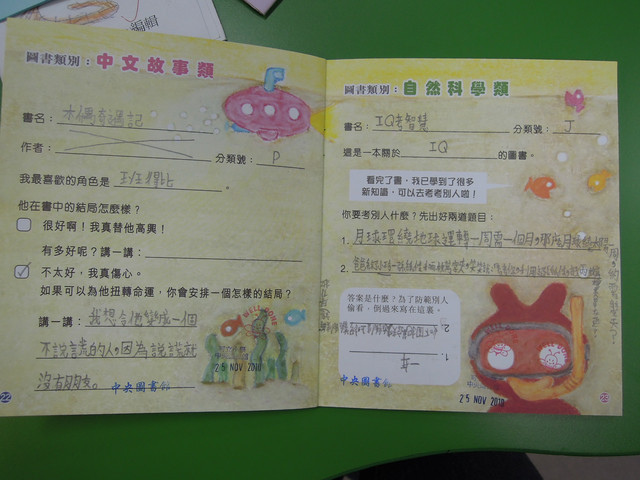 編輯
圖書類別：中文故事類
書名：木偶奇遇記
作者：
分類號：P
我最喜歡的角色是 班得比 。
他在書中的結局怎麼樣？
很好啊！我真替他高興！
有多好呢？講一講：
不太好，我真傷心。
如果可以為他扭轉命運，你會安排一個怎樣的結局？
講一講：我想令他變成一個
不說謊的人，因為說謊就
沒有朋友。
WELCOME
中央圖書館
25 NOV 2010
22
圖書類別：自然科學類
書名：IQ考智慧
分類號：J
這是一本關於 IQ 的圖書。
看完了書，我已學到了很多
新知識，可以去考考別人啦！
你要考別人什麼？先出好兩道題目：
1. 月球環繞地球運轉一周需一個月，那麼月球
2.
答案是什麼？為了防範別人
偷看，倒過來寫在這裏。
2.
1.
中央圖書館
25 NOV 2010
23